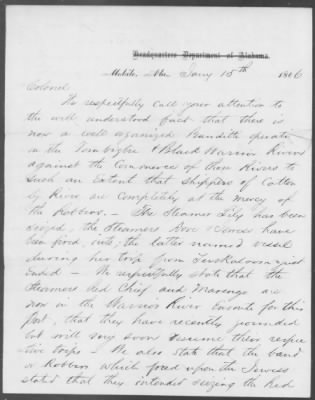 Headquarters Department of Alabama.
Mobile, Ala. Jany 15th 1866
Colonel
We respectfully call your attention to
the well understood fact that there is
now a well organized Banditti operating
on the Tombigbee & Black Warrior Rivers
against the Commerce of those Rivers to
such an Extent that shippers of Cotton
by River are completely at the mercy of
the Robbers. – The Steamer Lily has been
seized, the Steamers & Jewess have
been fired into, the latter named vessel
during her trip from Tuskaloosa just
Ended – We respectfully state that the
Steamers Red Chief and Marengo are
now in the Warrior River Enroute for this
Port, that they have recently
but will very soon resume their respec
tive trips – We also state that the band
of Robbers which fired upon the Jewess
stated that they intended seizing the Red